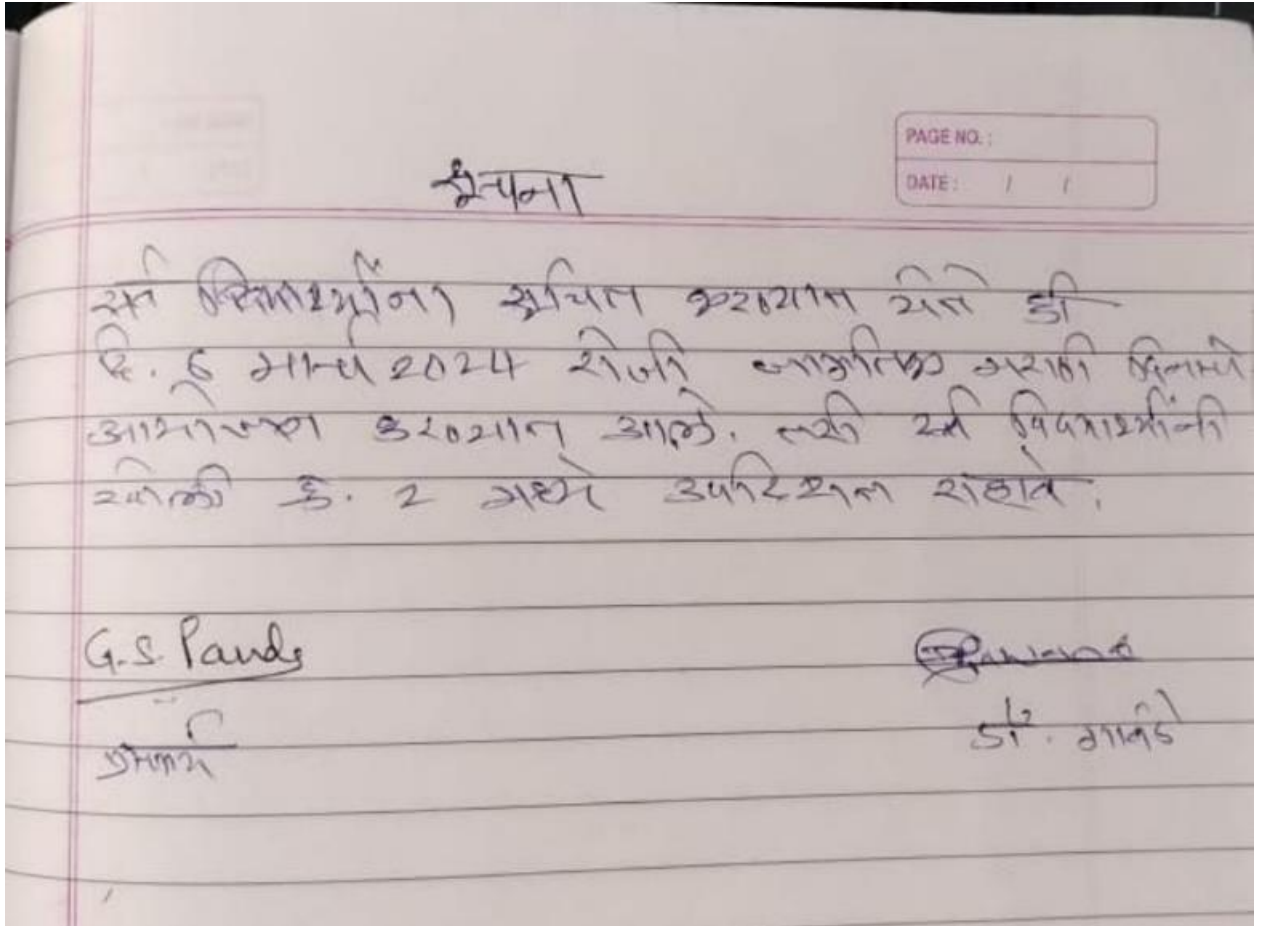 PAGE NO. :
DATE : / /
सूचना
सर्व विद्यार्थ्यांना सूचित करण्यात येते की
दि. 6 मार्च 2024 रोजी जागतिक मराठी दिनाचे
आयोजन करण्यात आले. तरी सर्व विद्यार्थ्यांनी
खोली क्र. 2 मध्ये उपस्थित राहावे.
G.S. Pande
प्राचार्य
डॉ. गावंडे